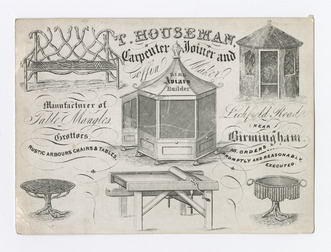 T. HOUSEMAN,
Carpenter Joiner and
Coffin Maker
BIRD
AVIARY
Builder
Manufacturer of
Table Mangles
Grottoes
RUSTIC ARBOURS CHAIRS & TABLES,
Lichfield Road
NEAR
Birmingham
ORDERS
PROMPTLY AND REASONABLY
EXECUTED